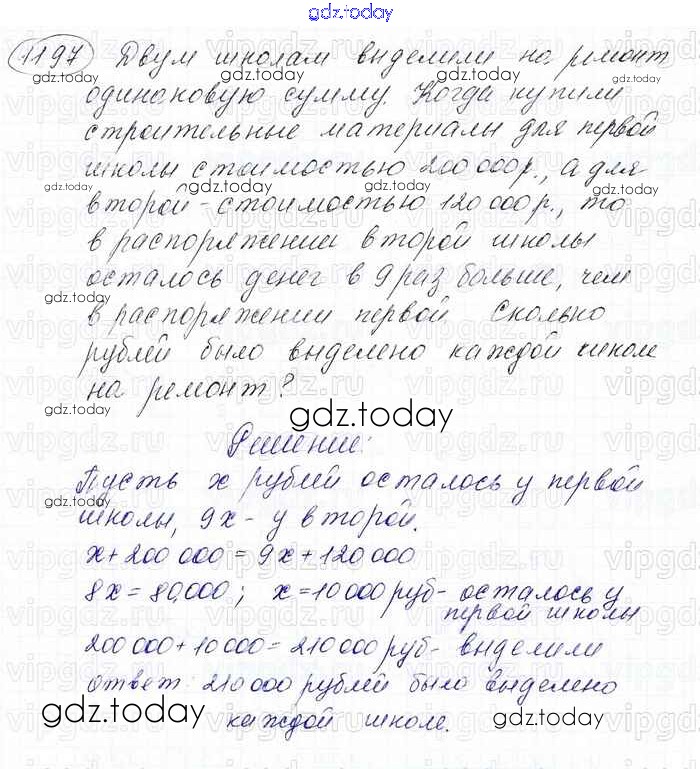 gdz.today
1197 Двум школам выделили на ремонт
одинаковую сумму. Когда купили
строительные материалы для первой
школы стоимостью 200 000 р., а для
второй - стоимостью 120 000 р., то
в распоряжении второй школы
осталось денег в 9 раз больше, чем
в распоряжении первой. Сколько
рублей было выделено каждой школе
на ремонт?
gdz.today
Решение:
Пусть х рублей осталось у первой
школы, 9х - у второй.
х + 200 000 = 9х + 120 000
8х = 80.000; х = 10 000 руб - осталось у
первой школы
200 000 + 10 000 = 210 000 руб - выделили
ответ: 210 000 рублей было выделено
каждой школе.
gdz.today
gdz.today